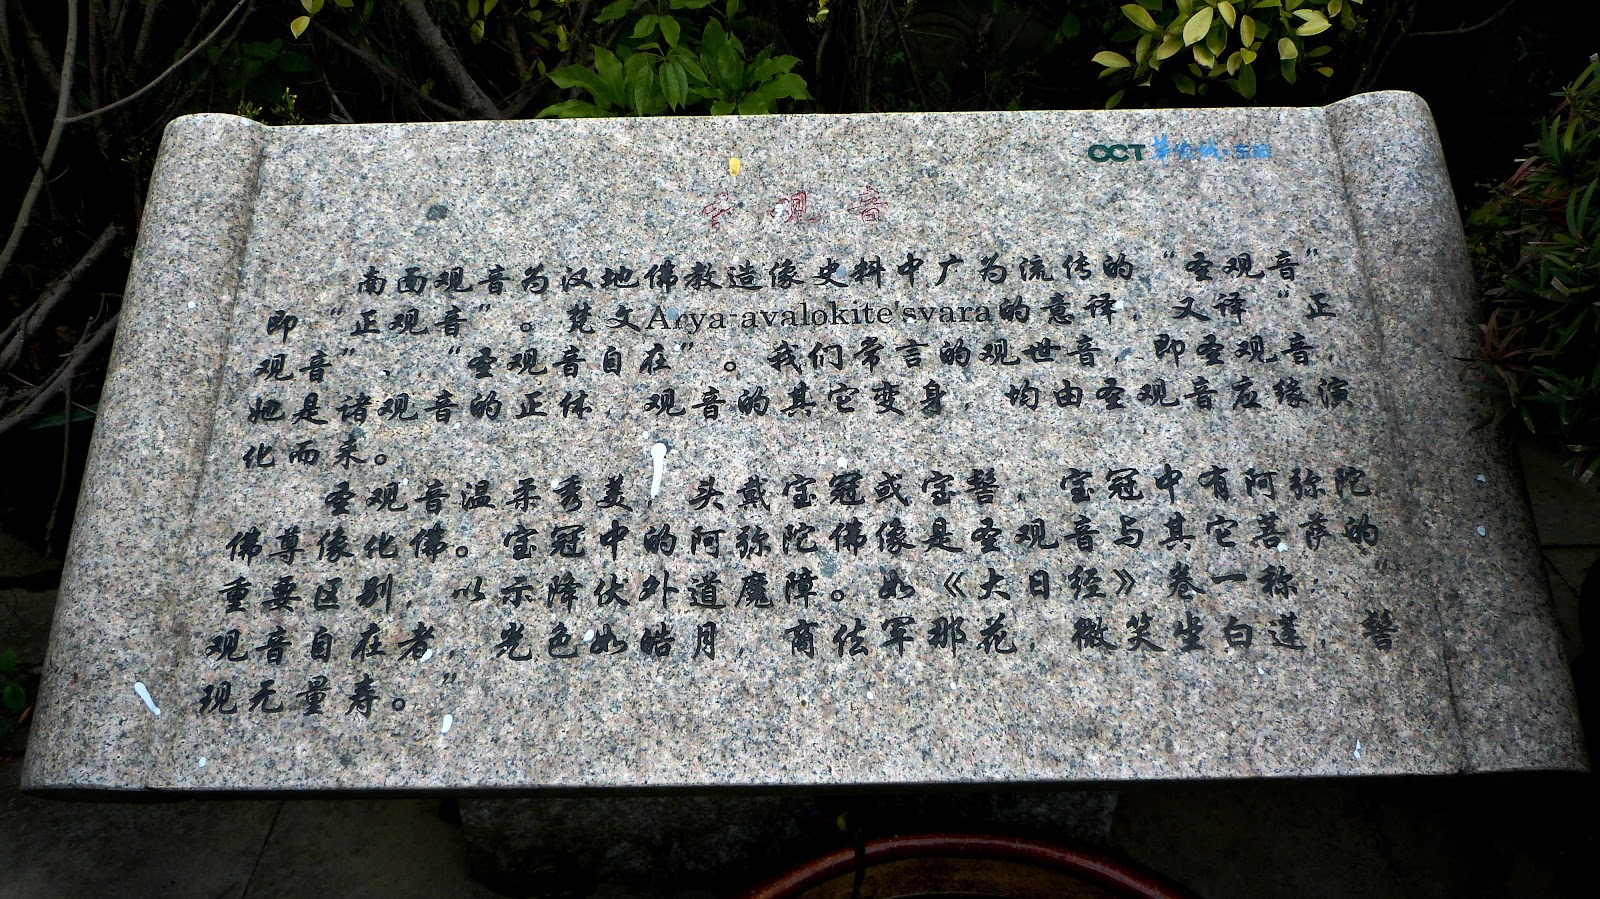 OCT 华侨城·东部
圣观音
南面观音为汉地佛教造像史料中广为流传的“圣观音”
即“正观音”。梵文Arya-avalokite'svara的意译，又译“正
观音” “圣观音自在”。我们常言的观世音，即圣观音，
她是诸观音的正体，观音的其它变身，均由圣观音应缘演
化而来。
圣观音温柔秀美，头戴宝冠或宝髻，宝冠中有阿弥陀
佛尊像化佛。宝冠中的阿弥陀佛像是圣观音与其它菩萨的
重要区别，以示降伏外道魔障。如《大日经》卷一称：“
观音自在者，光色如皓月，商佉军那花，微笑坐白莲，髻
现无量寿。”